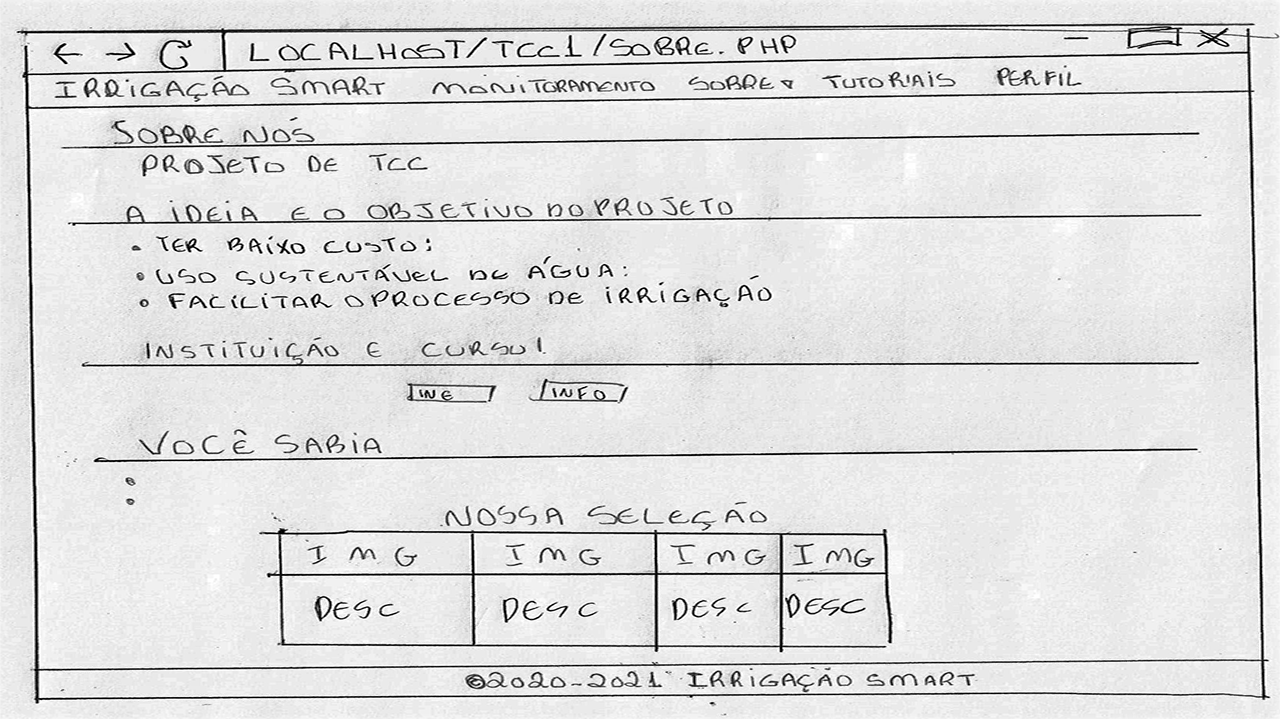 LOCALHOST/TCC1/SOBRE.PHP
IRRIGAÇÃO SMART MONITORAMENTO SOBRE TUTORIAIS PERFIL
SOBRE NÓS
PROJETO DE TCC
A IDEIA E O OBJETIVO DO PROJETO
• TER BAIXO CUSTO:
• USO SUSTENTÁVEL DE ÁGUA:
• FACILITAR O PROCESSO DE IRRIGAÇÃO
INSTITUIÇÃO E CURSO!
INE INFO
VOCÊ SABIA
NOSSA SELEÇÃO
IMG IMG IMG IMG
DESC DESC DESC DESC
©2020-2021 IRRIGAÇÃO SMART